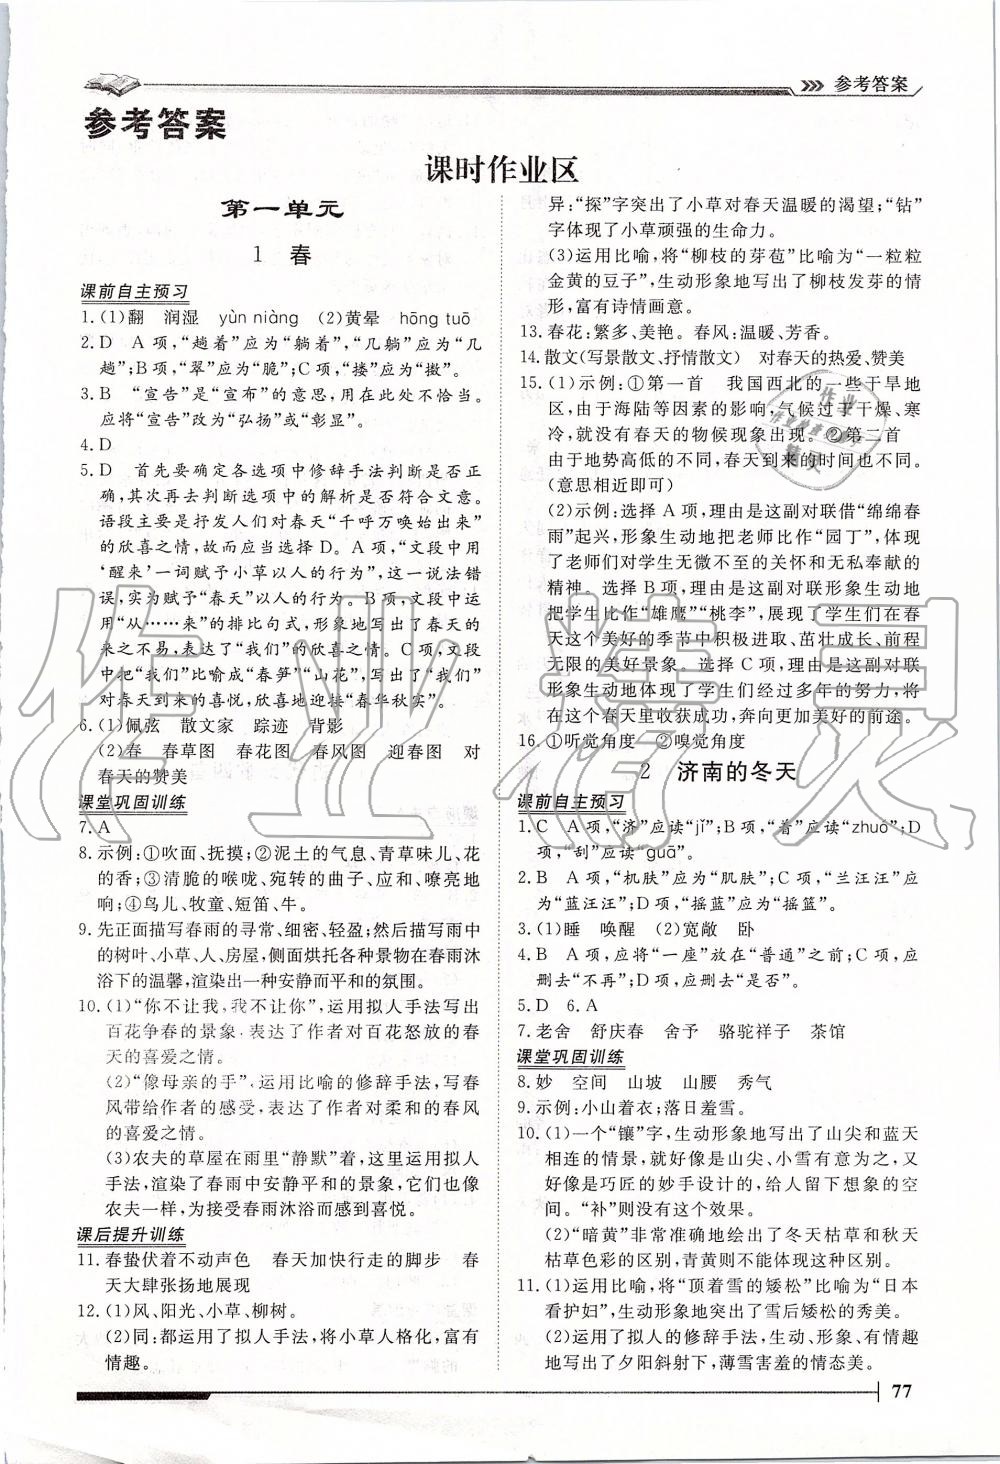 参考答案
参考答案
课时作业区
第一单元
1 春
课前自主预习
1.(1)翻 润湿 yùn niàng (2)黄晕 hōng tuō
2.D A项,“趟着”应为“躺着”,“几躺”应为“几
趟”;B项,“翠”应为“脆”;C项,“搂”应为“披”。
3.B “宣告”是“宣布”的意思,用在此处不恰当。
应将“宣告”改为“弘扬”或“彰显”。
4.D
5.D 首先要确定各选项中修辞手法判断是否正
确,其次再去判断选项中的解析是否符合文意。
语段主要是抒发人们对春天“千呼万唤始出来”
的欣喜之情,故而应选择D。A项,“文段中用
‘醒来’一词赋予小草以人的行为”,这一说法错
误,实为赋予“春天”以人的行为。B项,文段中运
用“从……来”的排比句式,形象地写出了春天的
来之不易,表达了“我们”的欣喜之情。C项,文段
中把“我们”比喻成“春笋”“山花”,写出了“我们”
对春天到来的喜悦,欣喜地迎接“春华秋实”。
6.(1)佩弦 散文家 踪迹 背影
(2)春 春草图 春花图 春风图 迎春图 对
春天的赞美
课堂巩固训练
7.A
8.示例:①吹面、抚摸;②泥土的气息、青草味儿、花
的香;③清脆的喉咙、宛转的曲子、应和、嘹亮地
响;④鸟儿、牧童、短笛、牛。
9.先正面描写春雨的寻常、细密、轻盈;然后描写雨
中的树叶、小草、人、房屋,侧面烘托各种景物在春雨沐
浴下的温馨,渲染出一种安静而平和的氛围。
10.(1)“你不让我,我不让你”,运用拟人手法写出
百花争春的景象,表达了作者对百花怒放的春
天的喜爱之情。
(2)“像母亲的手”,运用比喻的修辞手法,写春
风带给作者的感受,表达了作者对柔和的春风
的喜爱之情。
(3)农夫的草屋在雨里“静默”着,这里运用拟人
手法,渲染了春雨中安静平和的景象,它们也像
农夫一样,为接受春雨沐浴而感到喜悦。
课后提升训练
11.春蛰伏着不动声色 春天加快行走的脚步 春
天大肆张扬地展现
12.(1)风、阳光、小草、柳树。
(2)同:都运用了拟人手法,将小草人格化,富有
情趣。
异:“探”字突出了小草对春天温暖的渴望;“钻”
字体现了小草顽强的生命力。
(3)运用比喻,将“柳枝的芽苞”比喻为“一粒粒
金黄的豆子”,生动形象地写出了柳枝发芽的情
形,富有诗情画意。
13.春花:繁多、美艳。春风:温暖、芳香。
14.散文(写景散文、抒情散文) 对春天的热爱、赞美
15.(1)示例:①第一首 我国西北的一些干旱地
区,由于海陆等因素的影响,气候过于干燥、寒
冷,就没有春天的物候现象出现。②第二首
由于地势高低的不同,春天到来的时间也不同。
(意思相近即可)
(2)示例:选择A项,理由是这副对联借“绵绵春
雨”起兴,形象生动地把老师比作“园丁”,生动地体
现了老师们对学生无微不至的关怀和无私奉献的
精神。选择B项,理由是这副对联形象生动地
把学生比作“雄鹰”“桃李”,展现了学生们在春
天这个美好的季节中积极进取、茁壮成长、前程
无限的美好景象。选择C项,理由是这副对联
形象生动地体现了学生们经过多年的努力,将
在这个春天里收获成功,奔向更加美好的前途。
16.①听觉角度 ②嗅觉角度
2 济南的冬天
课前自主预习
1.C A项,“济”应读“jǐ”;B项,“着”应读“zhuó”;D
项,“刮”应读“guā”。
2.B A项,“机肤”应为“肌肤”;C项,“兰汪汪”应
为“蓝汪汪”;D项,“摇蓝”应为“摇篮”。
3.(1)睡 唤醒 (2)宽敞 卧
4.B A项,应将“一座”放在“普通”之前;C项,应
删去“不再”;D项,应删去“是否”。
5.D 6.A
7.老舍 舒庆春 舍予 骆驼祥子 茶馆
课堂巩固训练
8.妙 空间 山坡 山腰 秀气
9.示例:小山着衣;落日羞雪。
10.(1)一个“镶”字,生动形象地写出了山尖和蓝天
相连的情景,就好像是山尖、山岭有意为之,又
好像是巧匠的妙手设计的,给人留下想象的空
间。“补”则没有这个效果。
(2)“暗黄”非常准确地绘出了冬天枯草和秋天
枯草色彩的区别,青黄则不能体现这种区别。
11.(1)运用比喻,将“顶着雪的矮松”比喻为“日本
看护妇”,生动形象地突出了雪后矮松的秀美。
(2)运用了拟人的修辞手法,生动、形象、有情趣
地写出了夕阳斜射下,薄雪害羞的情态美。
77
作业精灵